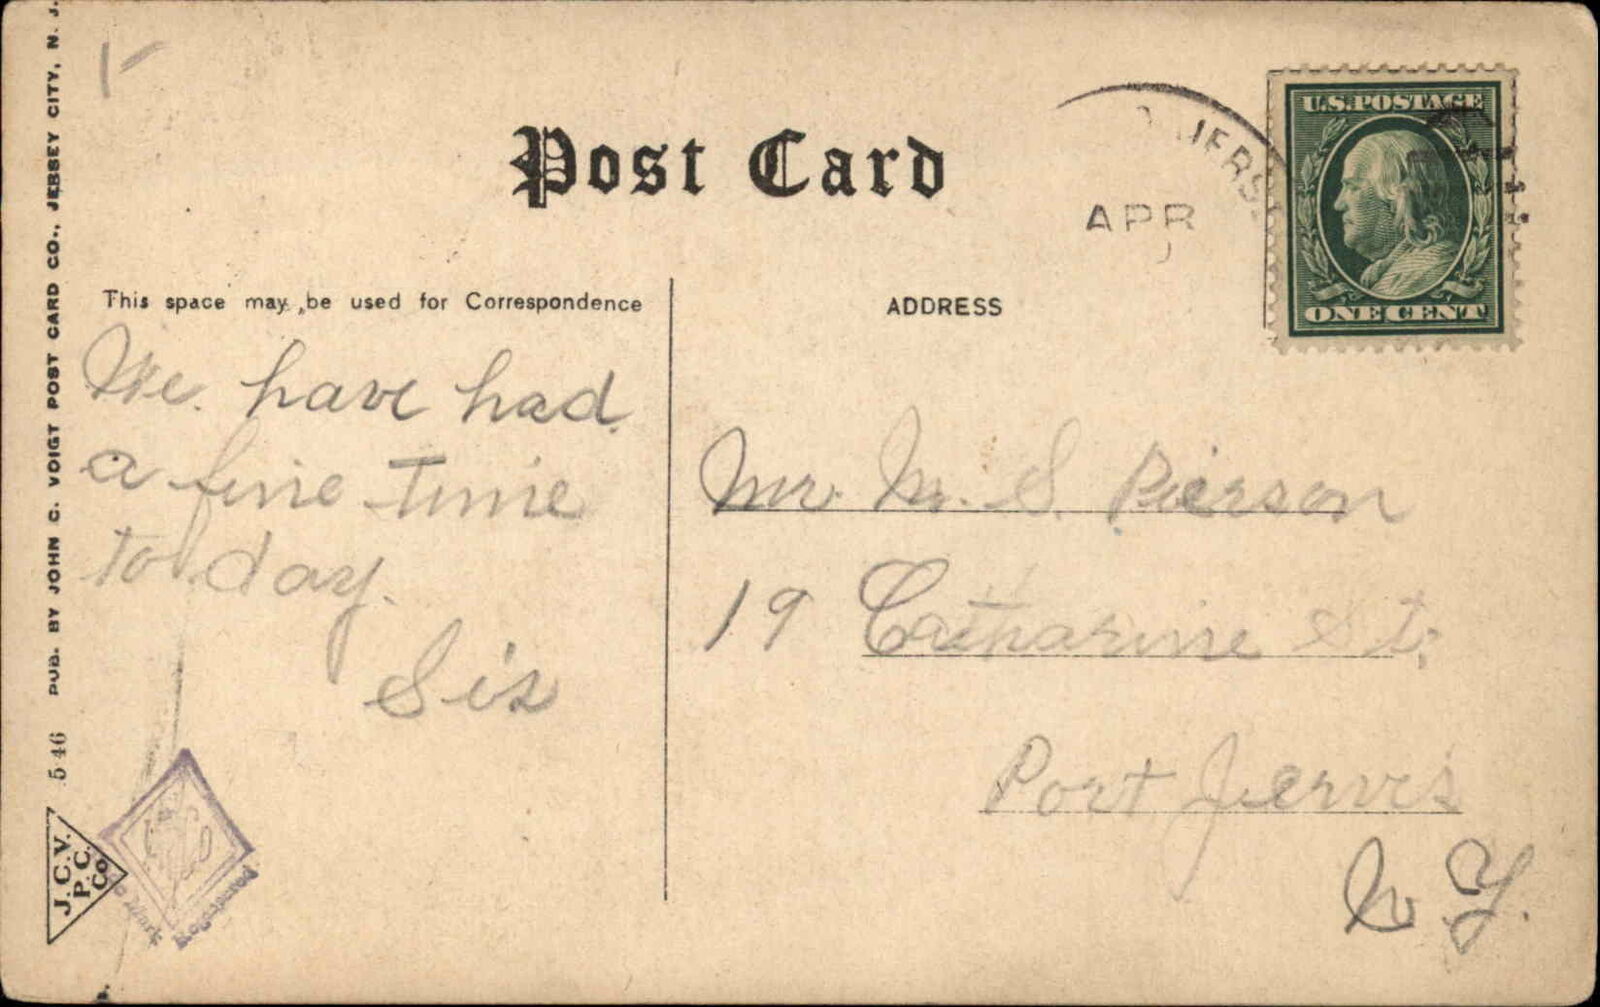 Post Card
This space may be used for Correspondence
ADDRESS
U.S. POSTAGE
ONE CENT
JERSEY
APR
We have had
a fine time
to day.
Sis
Mr. M. S. Pierson
19 Catharine St.
Port Jervis
N.Y.
PUB. BY JOHN C. VOIGT POST CARD CO., JERSEY CITY, N. J.
546
J.C.V.
P.C.
Co.